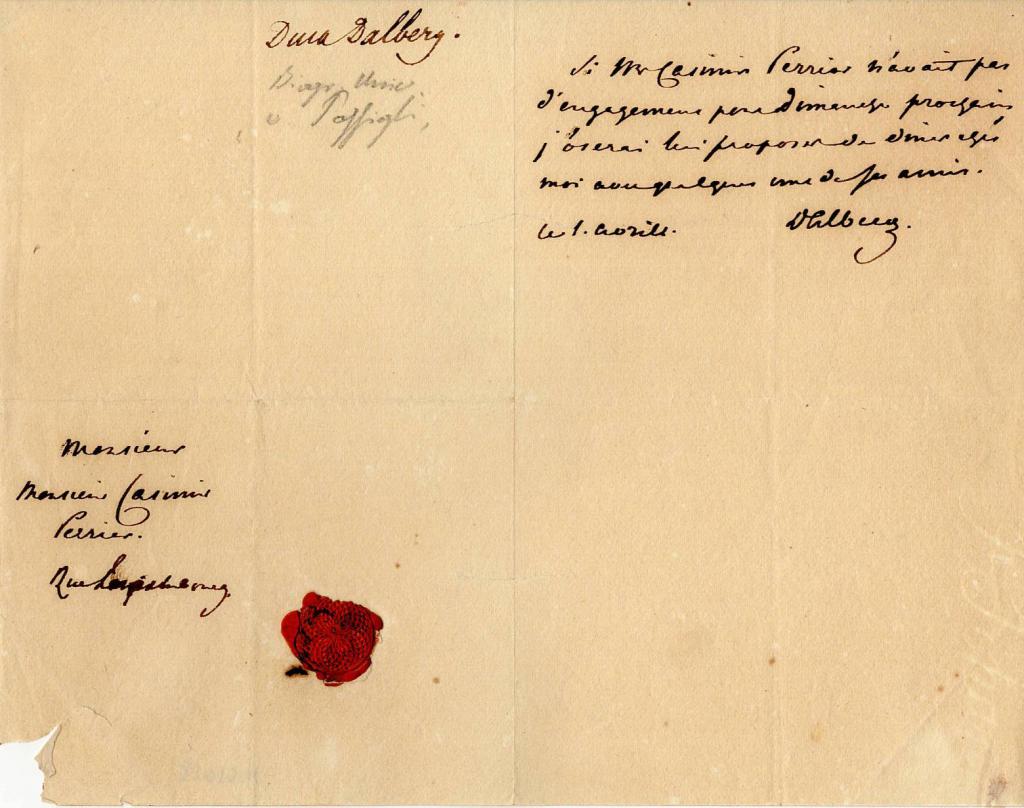 Duca Dalberg.
Biogr. Univ.
e Passigli,
Si Mr Casimir Perrier n'avait pas
d'engagement pour Dimanche prochain
j'oserai lui proposer de diner chés
moi avec quelques uns de ses amis.
le 1. avrill. Dalberg.
Monsieur
Monsieur Casimir
Perrier.
Rue Luxembourg